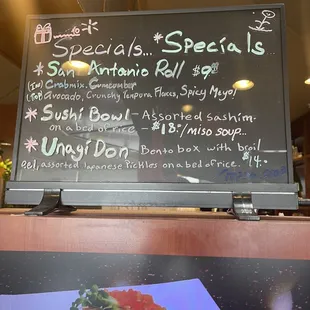 Specials... *Specials...
* San Antonio Roll $9.
(In) Crabmix, Cucumber
(Top) Avocado, Crunchy Tempura Flakes, Spicy Mayo
* Sushi Bowl - Assorted sashimi
on a bed of rice. - $18.- /miso soup...
* Unagi Don - Bento box with broil
eel, assorted Japanese Pickles on a bed of rice. $14.-